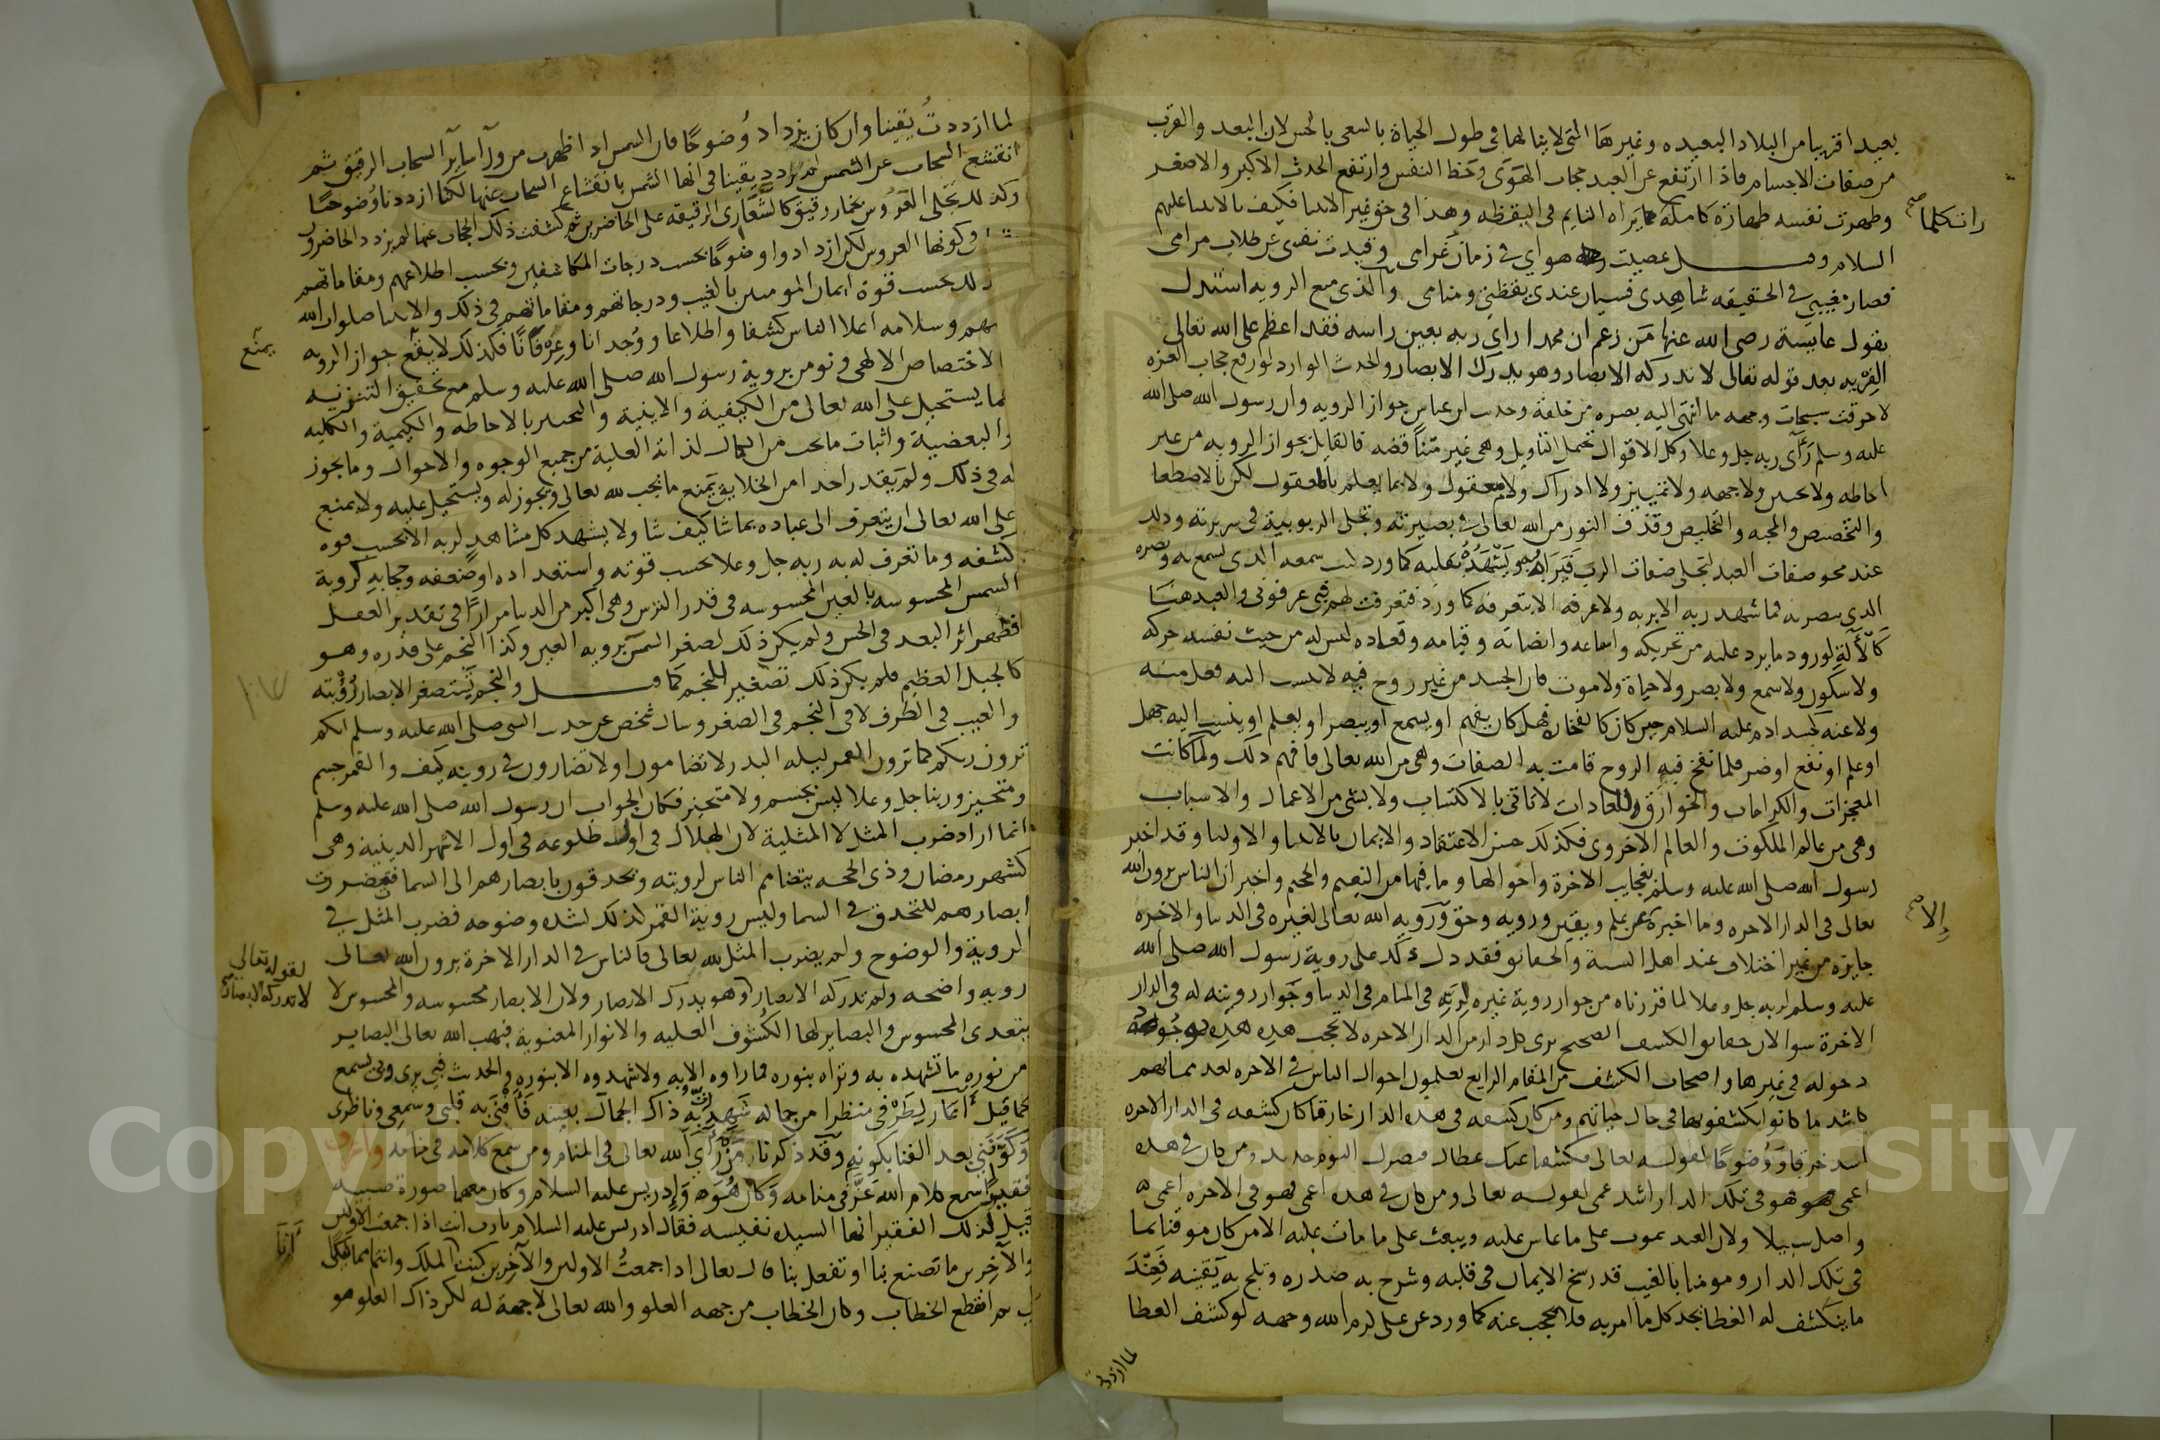 بعيدا قريبا من البلاد البعيده وغيرها التى لا ينالها فى طول الحياة بالسعى بالحس لان البعد والقرب
من صفات الاجسام فاذا ارتفع عن العبد حجاب الهوى وحظ النفس وارتفع الحدث الاكبر والاصغر
وطهرت نفسه طهارة كاملة يراه النايم فى اليقظه وهذا فى حق غير الانبيا فكيف بالانبيا عليهم
السلام وقيل عصيت هواي في زمان غرامى وقيدت نفسى عن طلاب مرامى
فصار مغيبي في الحقيقه شاهدى فسيان عندى يقظتى ومنامى والذى منع الرويه استدل
بقول عايشة رضى الله عنها من زعم ان محمدا راى ربه بعين راسه فقد اعظم على الله تعالى
الفريه بعد قوله تعالى لا تدركه الابصار وهو يدرك الابصار والحدث الوارد لو رفع حجاب العزه
لاحرقت سبحات وجهه ما انتهى اليه بصره من خلقه وحديث ابن عباس جواز الرويه وان رسول الله صلى الله
عليه وسلم رأى ربه جل وعلا وكل الاقوال تحتمل التاويل وهى غير متناقضه فالقايل بجواز الرويه من غير
احاطه ولا ولا جهه ولا تمييز ولا ادراك ولا معقول ولا بما يعلم بالمعقول لكن بالاصطفا
والتخصيص والمحبه والتخليص وقذف النور من الله تعالى في بصيرته وتجلى الربوبية فى سريرته وذلك
عند محو صفات العبد لتجلى صفات الرب فيراه به ويشهده بفعليه كما ورد كنت سمعه الذى يسمع به وبصره
الذى يبصر به فما شهد ربه الا بربه ولا عرفه الا بتعرفه كما ورد فتعرفت لهم فبى عرفونى والعبد هنا
كالآلة لورود ما يرد عليه من تحريكه واسماعه وانصاته وقيامه وقعاده ليس له من حيث نفسه حركه
ولا سكون ولا سمع ولا بصر ولا حياة ولا موت فان الجسد من غير روح فيه لا ينسب اليه فعل منه
ولا عنه كجسد ادم عليه السلام حين كان كالفخار فهل كان يفهم او يسمع او يبصر او يعلم او ينسب اليه جهل
او علم او نفع او ضر فلما نفخ فيه الروح قامت به الصفات وهى من الله تعالى فافهم ذلك ولما كانت
المعجزات والكرامات والخوارق للعادات لا تاتى بالاكتساب ولا بشى من الاعمال والاسباب
وهى من عالم الملكوت والعالم الاخروى فكذلك حسن الاعتقاد والايمان بالانبيا والاوليا وقد اخبر
رسول الله صلى الله عليه وسلم بعجايب الاخرة واحوالها وما فيها من النعيم والجحيم واخبر ان الناس يرون الله
تعالى فى الدار الاخره وما اخبر عن علم ويقين ورويه وحق ورويه الله تعالى لغيره فى الدنيا والاخره
جايزه من غير اختلاف عند اهل السنة والحقايق فقد دل ذلك على روية رسول الله صلى الله
عليه وسلم لربه جل وعلا لما قررناه من جواز روية غيره لربه فى المنام فى الدنيا وجواز رويته له فى الدار
الاخرة سوا لان حقايق الكشف الصحيح يرى كل دار من الدار الاخره لا يحجب هذه
دخوله فى غيرها واصحاب الكشف من المقام الرابع يعلمون احوال الناس فى الاخره بعد مماتهم
كاشد ما كانوا يكشفونها فى حال حياتهم ومن كان كشفه فى هذه الدار خارقا كان كشفه فى الدار الاخره
اشد خرقا ووضوحا لقوله تعالى فكشفنا عنك غطاك فبصرك اليوم حديد ومن كان فى هذه
اعمى فهو فى تلك الدار اشد عمى لقوله تعالى ومن كان فى هذه اعمى فهو فى الاخره اعمى
واضل سبيلا ولان العبد يموت على ما عاش عليه ويبعث على ما مات عليه الا من كان موقنا بما
فى تلك الدار ومومنا بالغيب قد رسخ الايمان فى قلبه وشرح به صدره وثلج به يقينه فعند
ما ينكشف له الغطا يجد كل ما امر به فلا يحجب عنه كما ورد عن على كرم الله وجهه لو كشف الغطا
لما ازدد
الا صح
لما ازددت يقينا وان كان يزداد وضوحا فان الشمس اذا ظهرت من وراء ساير السحاب الرقيق ثم
انقشع السحاب عن الشمس لم يزدد يقينا فى انها الشمس بانقشاع السحاب عنها لكنا ازددنا وضوحا
وكذلك تجلى العروس بخمار رقيق كالشعارى الرقيقه على الحاضرين ثم كشفت ذلك الحجاب عنها لم يزدد الحاضرون
وكونها العروس لكن ازدادوا وضوحا بحسب درجات المكاشفين وبحسب اطلاعهم ومقاماتهم
بحسب قوة ايمان المومنين بالغيب ودرجاتهم ومقاماتهم فى ذلك والانبيا صلوات الله
وسلامه اعلا الناس كشفا واطلاعا ووجدانا وعرفانا فكذلك لا يقع جواز الرويه
الاختصاص الالهى ونومن بروية رسول الله صلى الله عليه وسلم مع تحقيق التنزيه
لما يستحيل على الله تعالى من الكيفية والاينية والتحييز بالاحاطه والكيمية والكليه
والبعضية واثبات ما يجب من الكمال لذاته العلية من جميع الوجوه والاحوال وما يجوز
له فى ذلك ولم يقدر احد من الخلايق يمنع ما يجب لله تعالى ويجوز له ويستحيل عليه ولا يمنع
على الله تعالى ان يتعرف الى عباده بما شا كيف شا ولا يشهد كل مشاهد لربه الا بحسب قوه
كشفه وما تعرف له به ربه جل وعلا بحسب قوته واستعداده او ضعفه وحجابه كروية
الشمس المحسوسه بالعين المحسوسه فى قدر الترس وهى اكبر من الدنيا مرارا فى تقدير العقل
فظهر اثر البعد فى الحس ولم يكن ذلك لصغر الشمس برويه العين وكذا النجم على قدره وهو
كالجبل العظيم فلم يكن ذلك تصغير للنجم كما قيل والنجم تستصغر الابصار رؤيته
والعيب فى الطرف لا فى النجم فى الصغر وسال شخص عن حديث النبى صلى الله عليه وسلم انكم
ترون ربكم كما ترون القمر ليله البدر لا تضامون او لا تضارون في رويته كيف والقمر جسم
ومتحيز وربنا جل وعلا ليس بجسم ولا متحيز فكان الجواب ان رسول الله صلى الله عليه وسلم
انما اراد ضرب المثل لا المثلية لان الهلال فى اول طلوعه فى اول الاشهر الدينيه وهى
كشهر رمضان وذى الحجه يتضامم الناس لرويته ويحدقون بابصارهم الى السما فيضرون
ابصارهم للتحدق في السما وليس روية القمر لذلك لشده وضوحه فضرب المثل في
الروية والوضوح ولم يضرب المثل لله تعالى فالناس فى الدار الاخرة يرون الله تعالى
رويه واضحه ولم تدركه الابصار وهو يدرك الابصار ولان الابصار محسوسه والمحسوس لا
يتعدى المحسوس والبصاير لها الكشوف العليه والانوار المعنوية فيهب الله تعالى البصاير
من نوره ما تشهده به وتراه بنوره فما راوه الا به ولا شهدوه الا بنوره والحدث فبى يرى وبى يسمع
كما قيل اعار طرفى منظرا من جماله شهدت به ذاك الجمال بعينه فافنى به قلبى وسمعى وناظرى
وكونى بعد الفنا بكونه وقد ذكرنا من راى الله تعالى فى المنام ومن سمع كلامه فى منامه
فقيرا سمع كلام الله عز فى منامه وكان هو وادريس عليه السلام وكان معهما صورة صبيه
قيل لذلك الفقير انها السيده نفيسه فقال ادريس عليه السلام يا رب انت اذا جمعت الاولين
والآخرين ما تصنع بنا او تفعل بنا قال تعالى اذا جمعت الاولين والآخرين كنت الملك وانتما
ثم انقطع الخطاب وكان الخطاب من جهه العلو والله تعالى لا جهة له لكن ذاك العلو هو
يمنع
لقوله تعالى
لا تدركه الابصار
Copyright © King Saud University